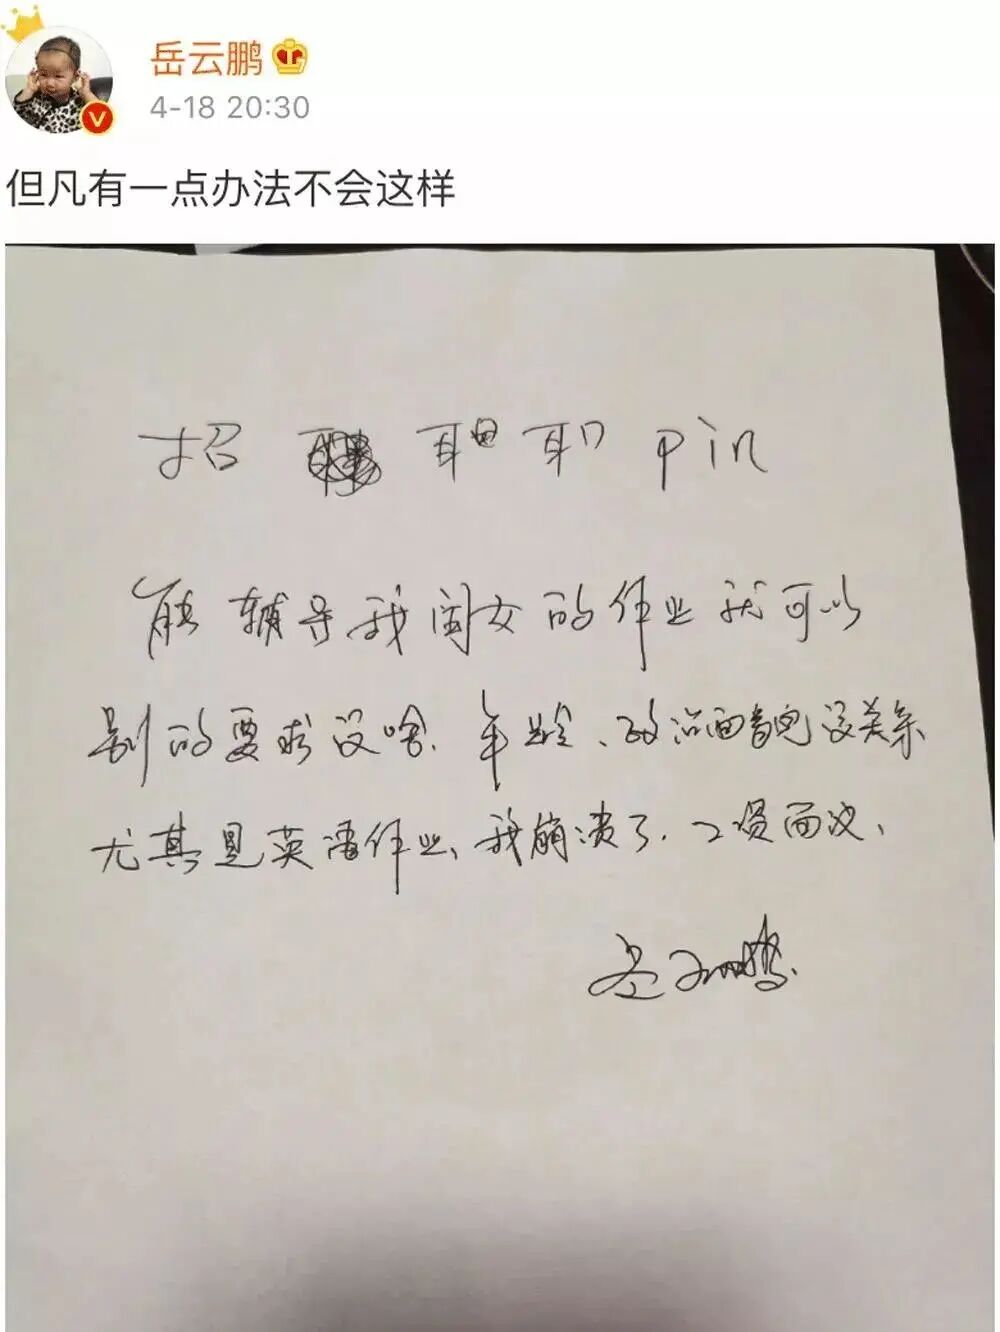 岳云鹏
V
4-18 20:30
但凡有一点办法不会这样
招 pin
能辅导我闺女的作业就可以
别的要求没啥、年龄、政治面貌没关系
尤其是英语作业、我崩溃了.工资面议、
岳云鹏